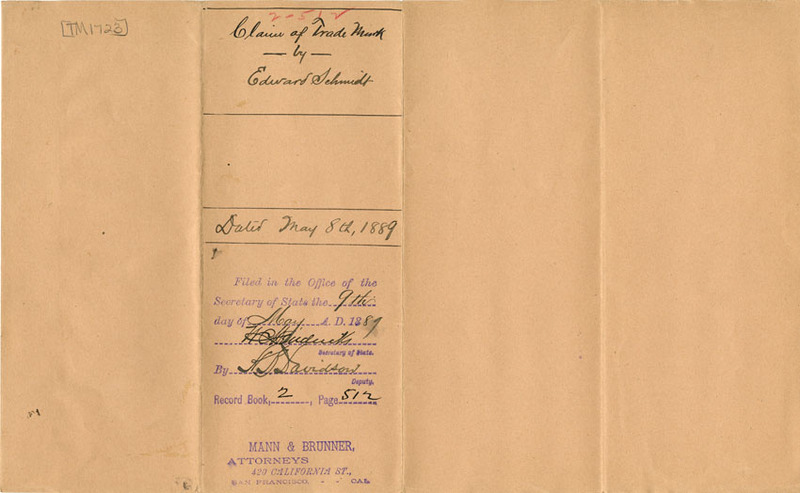 [TM1723]
2-512
Claim of Trade Mark
— by —
Edward Schmidt
Dated May 8th, 1889
Filed in the Office of the
Secretary of State the 9th
day of May A. D. 1889
Secretary of State.
By Davidson
Deputy.
Record Book, 2, Page 512
MANN & BRUNNER,
ATTORNEYS
429 CALIFORNIA ST.,
SAN FRANCISCO. - - CAL